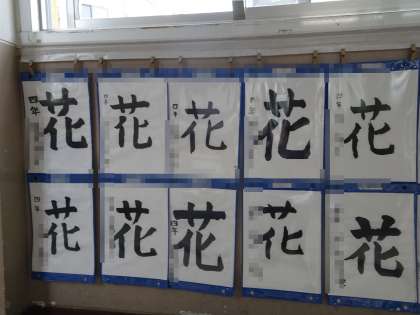 花
四年
花
四
花
四
花
四年
花
花
四年
花
四年
花
花
四年
花
四
花